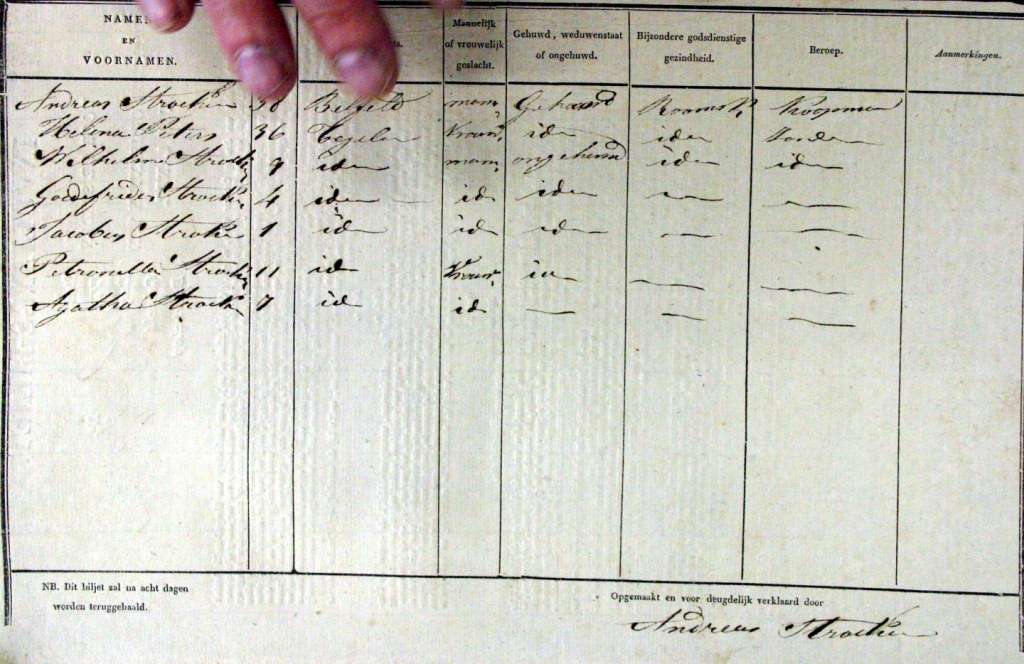 NAMEN EN VOORNAMEN. Mannelijk of vrouwelijk geslacht. Gehuwd, weduwenstaat of ongehuwd. Bijzondere godsdienstige gezindheid. Beroep. Aanmerkingen.
Andreas Stroeken 38 Belfeld man. Gehuwd Rooms K. Koopman
Helena Peters 36 Tegelen Vrouw. iden iden
Wilhelm Stroeken 9 iden man. ongehuwd iden iden
Godefridus Stroeken 4 iden id iden — —
Jacobus Stroeken 1 id id id — —
Petronella Stroeken 11 id Vrouw. id — —
Agatha Stroeken 7 id id — — —
NB. Dit biljet zal na acht dagen
worden teruggehaald.
Opgemaakt en voor deugdelijk verklaard door
Andreas Stroeken